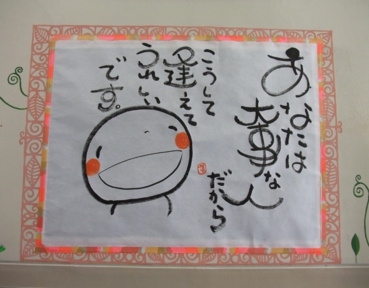 あなたは
大事な人
だから
こうして
逢えて
うれしい
です。